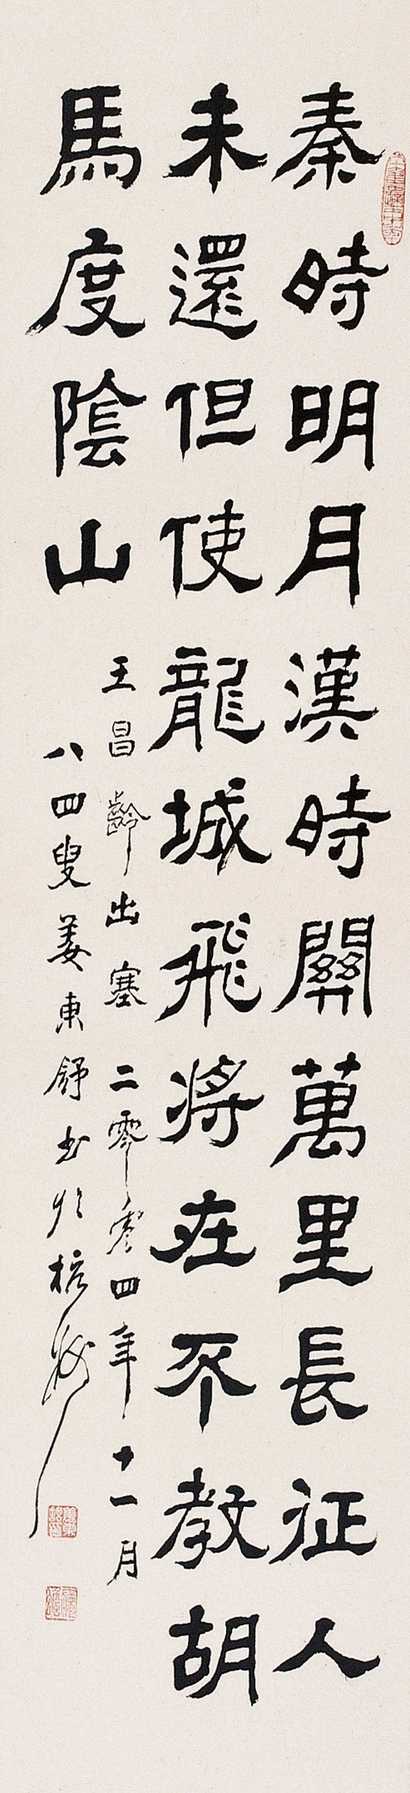 秦時明月漢時關萬里長征人
未還但使龍城飛將在不教胡
馬度陰山
王昌齡出塞 二零零四年十一月
八四叟姜東舒書於杭州